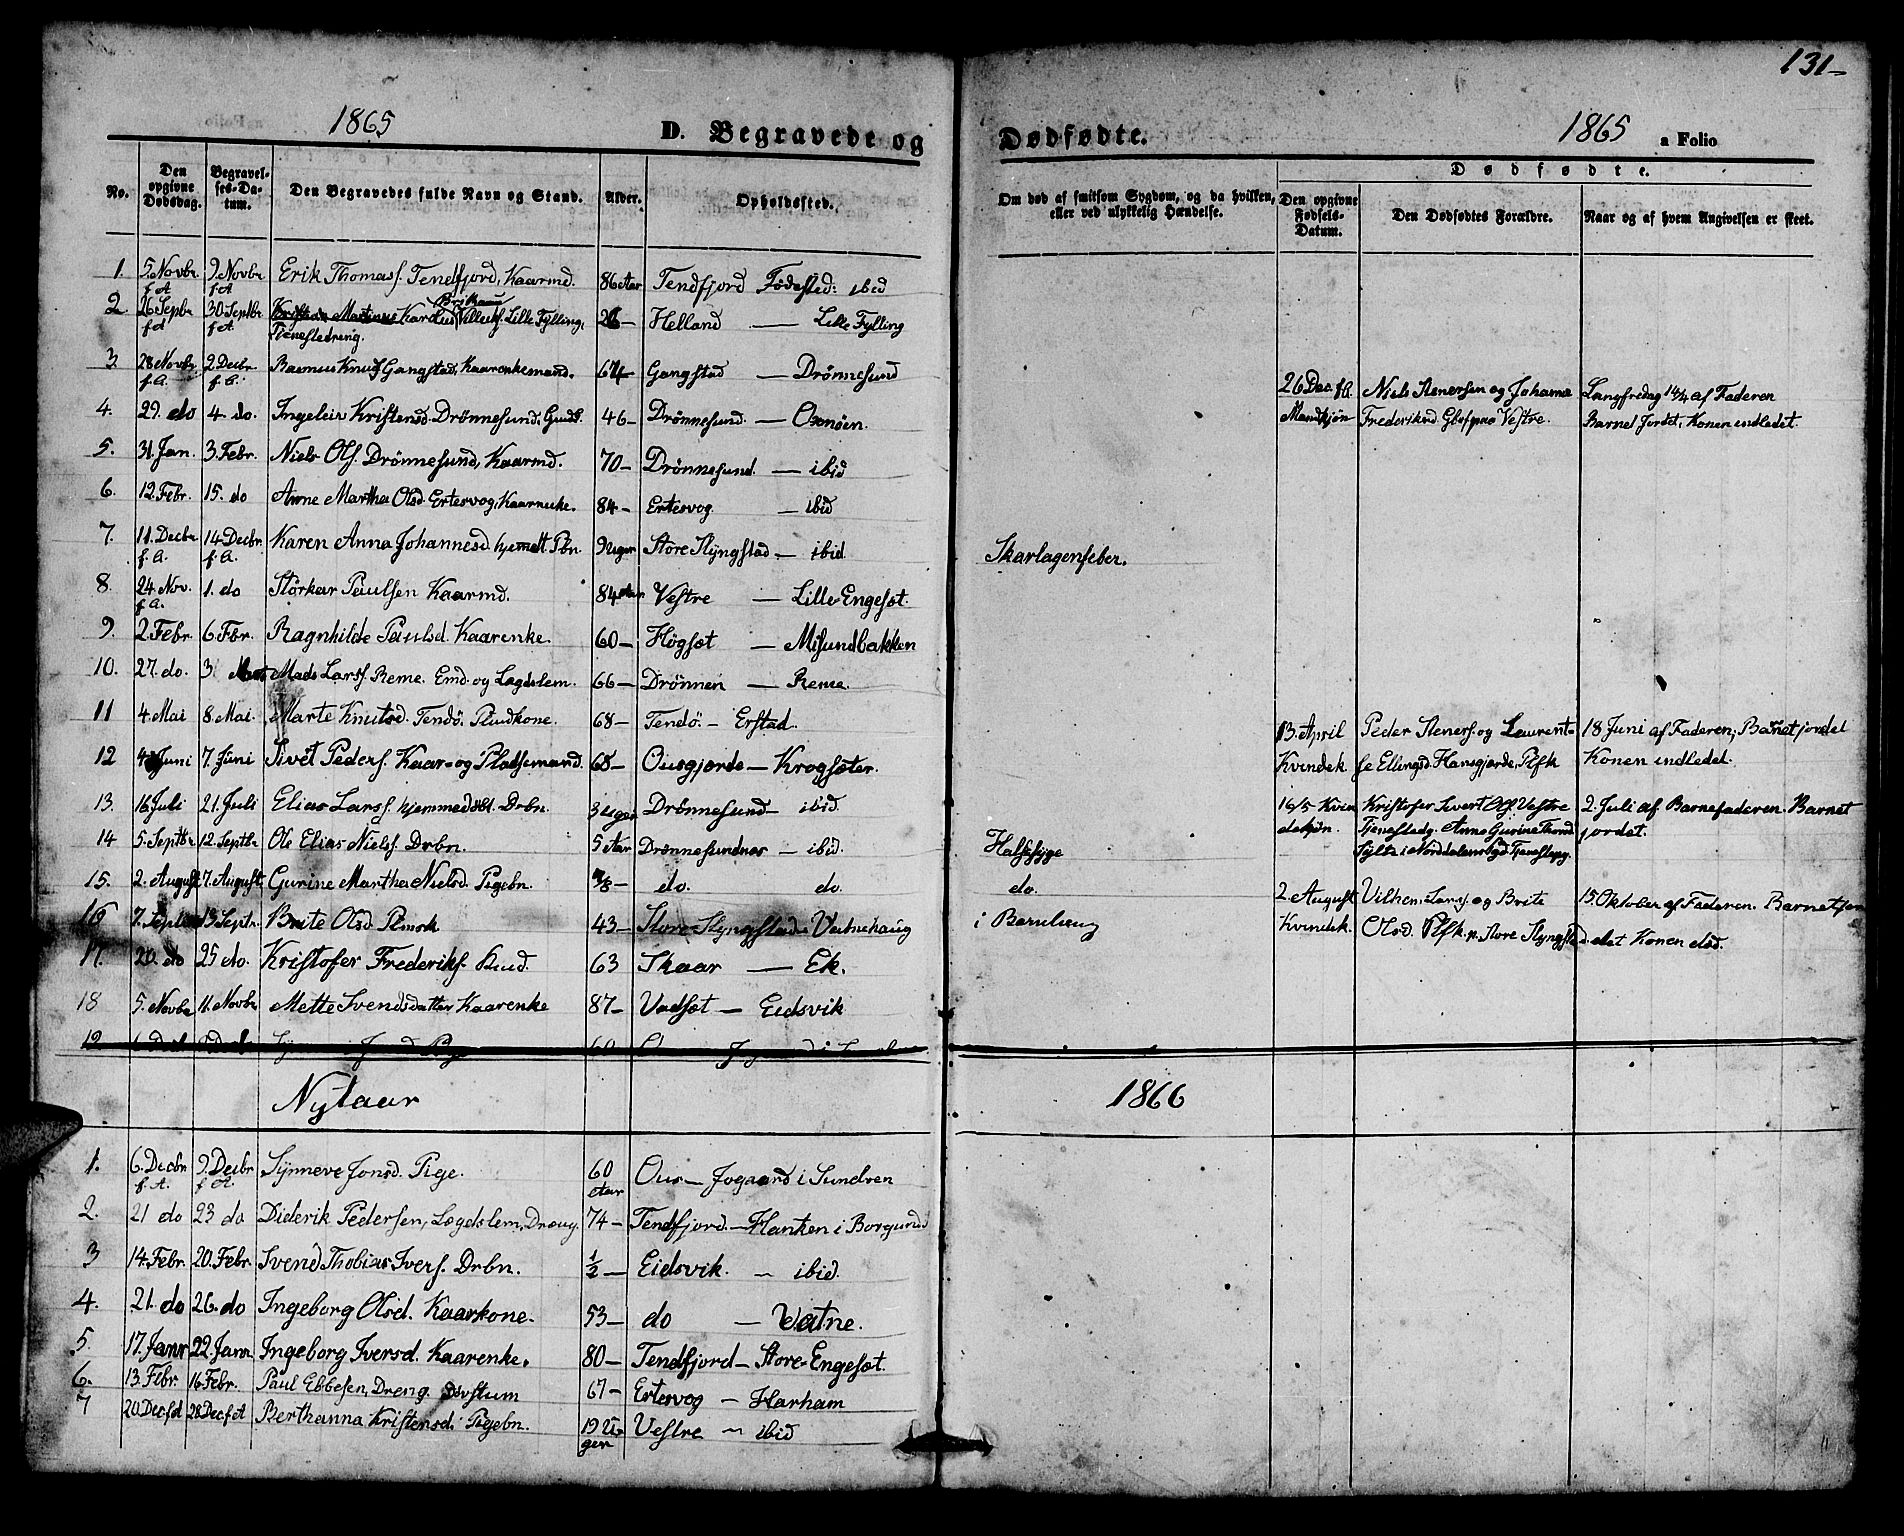 131-
1865
D. Begravede og
Dødfødte.
1865
a Folio
No.
Den opgivne Dødsdag.
Begravelses-Datum.
Den Begravedes fulde Navn og Stand.
Alder.
Opholdssted.
Om død af smitsom Sygdom, og da hvilken, eller ved ulykkelig Hændelse.
Dødfødte.
Den opgivne Fødsels-Datum.
Den Dødfødtes Forældre.
Naar og af hvem Angivelsen er skeet.
1. 5. Novbr f. A. 9. Novbr f. A. Erik Thomass. Tendfjord, Kaarmd. 86 Aar Tendfjord Fødested: ibid
2. 26 Septbr f. A. 30 Septbr f. A. Karolus Villerss. Lille Fylling, Tjenestedreng. 26 — Helland — Lille Fylling
3. 28 Novbr f. A. 2. Decbr. f. A. Rasmus Knuds. Gangstad, Kaarenkemand. 64 — Gangstad — Drønnesund
4. 29. do 4. do. Ingeleiv Kristensd. Drønnesund, 46 — Drønnesund. — Oxnøen.
5. 31. Jan. 3. Febr. Niels Ols. Drønnesund, Kaarmd. 70 — Drønnesund. — ibid
6. 12. Febr. 15. do Anne Martha Olsd. Ertesvog, Kaarenke. 84 — Ertesvog — ibid
7. 11. Decbr f. A. 14. Decbr. f. A. Karen Anna Johannesd. hjemdt. Pbn. 9 Uger Store Slyngstad — ibid. Skarlagensfeber.
8. 24. Nov. f. A. 1. do Størkar Paulsen Kaarmd. 84 Aar Vestre — Lille-Engesæt.
9. 2. Febr. 6. Fbr. Ragnhilde Paulsd. Kaarenke. 60 — Høgsæt — Misundbakken
10. 27. do. 3 Mads Larss. Reme. Emd. og Lægdslem. 66 — Drønnen — Reme.
11 4. Mai 8. Mai. Marte Knutsd. Tendø. 68 — Tendø. — Erstad.
12 4 Juni 7. Juni Sivet Peders. Kaar- og Pladsemand. 68 — Ousgjerde — Krogsæter.
13. 16 Juli 21. Juli Elias Larss. hjemmedøbt. Drbn. 3 Uger Drønnesund — ibid.
14 5. Septbr 12. Septbr. Ole Elias Nielss. Drbn. 5 Aar Drønnesundnes — ibid. Halssyge
15. 2. August 7. August. Gurine Martha Nielsd. Pigebn. 7/8 — do. do. do.
16 7. Septbr 13. Septr. Brite Olsd. 43 — Store-Slyngstad — Vatnehaug i Barselseng
17. 20. do 25 do. Kristofer Frederiks. 63 Skaar — Ek.
18 5. Novbr 11. Novbr Mette Svendsdatter Kaarenke 87 — Vadsæt — Eidsvik
26 Dec. f. A. Mandkjøn Niels Stenersen og Johanne Frederiksd. Vestre. Langfredag 14/4 af Faderen Barnet Jordet, Konen indledet.
13. April Kvindek Peder Steners. og Laurentse Ellingsd. Hansgjerde, Pfsk 18 Juni af Faderen, Barnet jordet Konen indledet.
16/5 Kvindekjøn. Kristofer Sivert Ols. Vestre Tjenestedg. Anne Gurine i Norddalens Tjenestepg. 2. Juli af Barnefaderen. Barnet jordet.
2 August Kvindek. Vilhen. Larss. og Brite Olsd. Pfsk. p. Store Slyngstad. 15. Oktober af Faderen. Barnet jordet Konen død.
Nytaar
1866
1. 6. Decbr f. A. 9. Decbr f. A. Synneve Jonsd. Pige. 60 Aar Ous — Jogaard i Sundren
2. 21 do 23 do Diderik Pedersen, Lægdslem, Dreng. 74 — Tendfjord. — Hanken i Borgund
3 14. Febr. 20. Febr. Svend Thobias Ivers. Drbn. 1/2 — Eidsvik. — ibid.
4. 21. do 26. do Ingeborg Olsd. Kaarkone. 53 — do — Vatne.
5. 17. Janr 22. Janr. Ingeborg Iversd. Kaarenke. 80 — Tendfjord — Store-Engesæt.
6. 13. Febr. 16 Febr. Paul Ebbesen, Dreng, Døvstum 67 — Ertesvog — Harham
7 20 Dec. f A 28 Dec. f A Berthanna Kristensd. Pigebn. 19 Uger Vestre — ibid